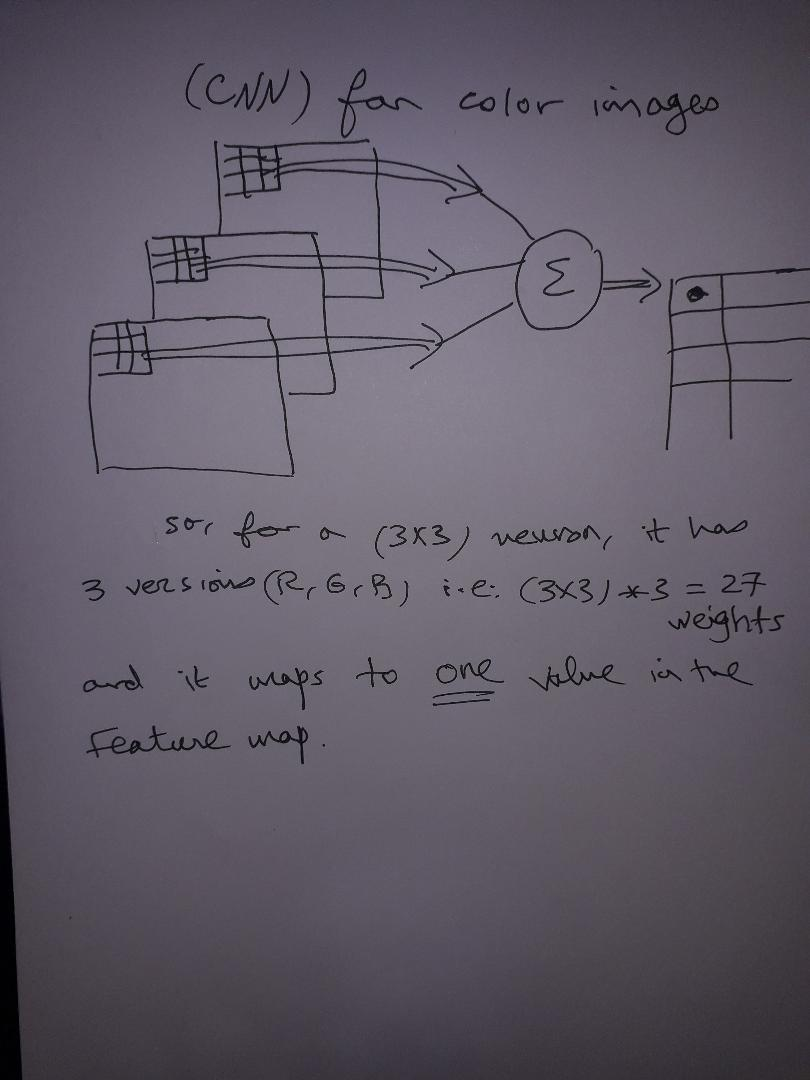 (CNN) for color images
Σ
so, for a (3x3) neuron, it has
3 versions (R, G, B) i.e: (3x3) * 3 = 27
weights
and it maps to one value in the
Feature map.